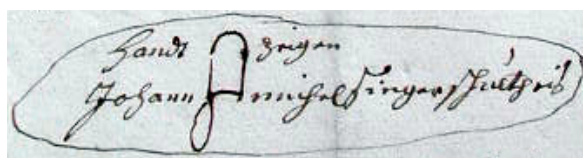 handt zeigen
Johann michel singer schultheis